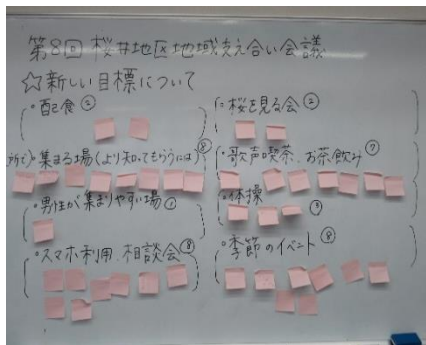 第8回 桜井地区地域支え合い会議
☆新しい目標について
・配食②
・集まる場(より知ってもらうには)⑧
・男性が集まりやすい場①
・スマホ利用、相談会⑧
・桜を見る会②
・歌声喫茶、お茶飲み⑦
・体操③
・季節のイベント⑧